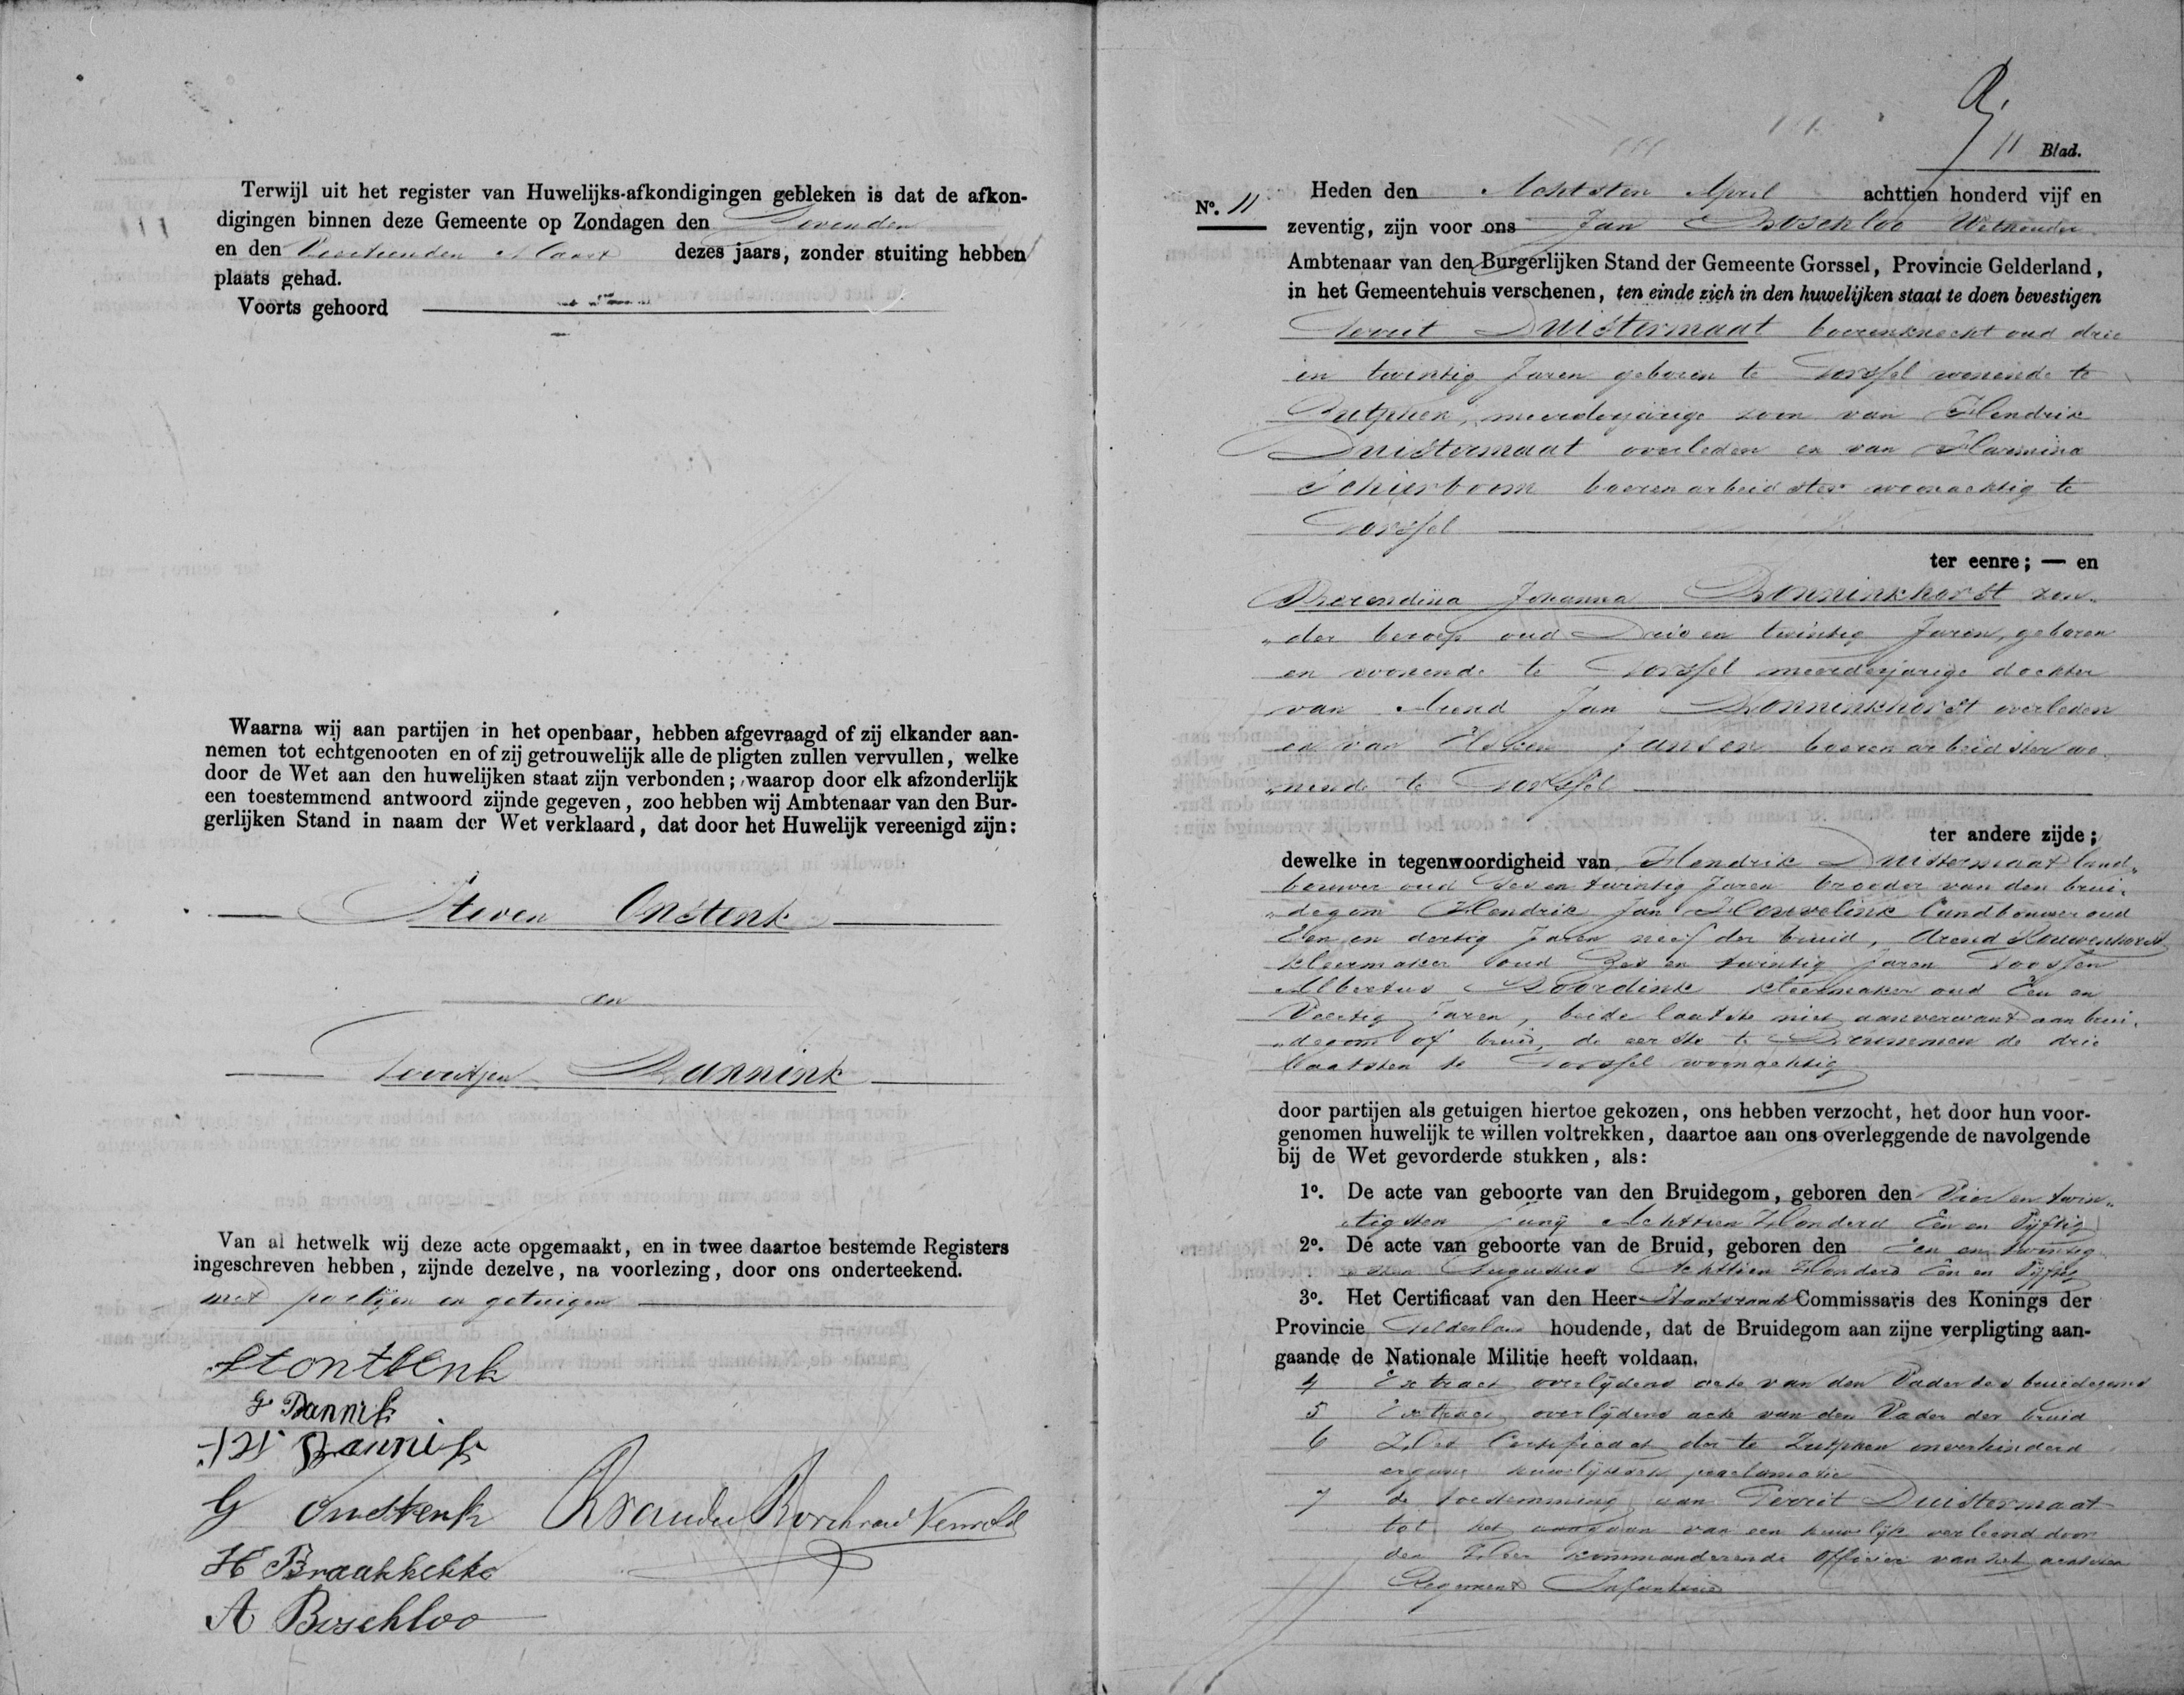 Terwijl uit het register van Huwelijks-afkondigingen gebleken is dat de afkon-
digingen binnen deze Gemeente op Zondagen den Zevenden
en den Veertienden Maart dezes jaars, zonder stuiting hebben
plaats gehad.
Voorts gehoord
Waarna wij aan partijen in het openbaar, hebben afgevraagd of zij elkander aan-
nemen tot echtgenooten en of zij getrouwelijk alle de pligten zullen vervullen, welke
door de Wet aan den huwelijken staat zijn verbonden; waarop door elk afzonderlijk
een toestemmend antwoord zijnde gegeven, zoo hebben wij Ambtenaar van den Bur-
gerlijken Stand in naam der Wet verklaard, dat door het Huwelijk vereenigd zijn:
Steven Onstenk
en
Gerritjen Bannink
Van al hetwelk wij deze acte opgemaakt, en in twee daartoe bestemde Registers
ingeschreven hebben, zijnde dezelve, na voorlezing, door ons onderteekend.
met partijen en getuigen
St ontstenk
G Bannink
Bannink
G Onstenk
H Braakhekke
A Boschloo
11 Blad.
No. 11
Heden den Achtsten April achttien honderd vijf en
zeventig, zijn voor ons Jan Boschloo Wethouder
Ambtenaar van den Burgerlijken Stand der Gemeente Gorssel, Provincie Gelderland,
in het Gemeentehuis verschenen, ten einde zich in den huwelijken staat te doen bevestigen
Gerrit Duistermaat boerenknecht oud drie
en twintig Jaren geboren te Gorssel wonende te
Zutphen, meerderjarige zoon van Hendrik
Duistermaat overleden en van Harmina
Schierboom boeren arbeidster woonachtig te
Gorssel
ter eenre; — en
Berendina Johanna Bonninkhorst zon„
„der beroep oud Drie en twintig Jaren, geboren
en wonende te Gorssel meerderjarige dochter
van Arend Jan Bonninkhorst overleden
en van Jansen boeren arbeidster wo„
„nende te Gorssel
ter andere zijde;
dewelke in tegenwoordigheid van Hendrik Duistermaat land„
bouwer oud Zes en twintig Jaren broeder van den brui„
„degom Hendrik Jan Heuvelink landbouwer oud
Een en dertig Jaren neef der bruid, Arend Kouwenhorst
kleermaker oud Zes en twintig Jaren
Albertus Noordink kleermaker oud Een en
Veertig Jaren, beide laatste niet aanverwant aan brui„
„degom of bruid, de eerste te Brummen de drie
laatsten te Gorssel woonachtig
door partijen als getuigen hiertoe gekozen, ons hebben verzocht, het door hun voor-
genomen huwelijk te willen voltrekken, daartoe aan ons overleggende de navolgende
bij de Wet gevorderde stukken, als:
1o. De acte van geboorte van den Bruidegom, geboren den Vier en twin„
„tigsten Junij Achttien Honderd Een en Vijftig
2o. De acte van geboorte van de Bruid, geboren den Een en twintig
„sten Augustus Achttien Honderd Een en Vijftig
3o. Het Certificaat van den Heer Staatsraad Commissaris des Konings der
Provincie Gelderland houdende, dat de Bruidegom aan zijne verpligting aan-
gaande de Nationale Militie heeft voldaan.
4 Extract overlijdens acte van den Vader des bruidegoms
5 Extract overlijdens acte van den Vader der bruid
6 Het Certificaat der te Zutphen onverhinderd
huwelijksche proclamatie
7 de toestemming aan Gerrit Duistermaat
tot het aangaan van een huwelijk verleend door
den Heer kommanderende Officier van het achtsten
Regement Infanterie